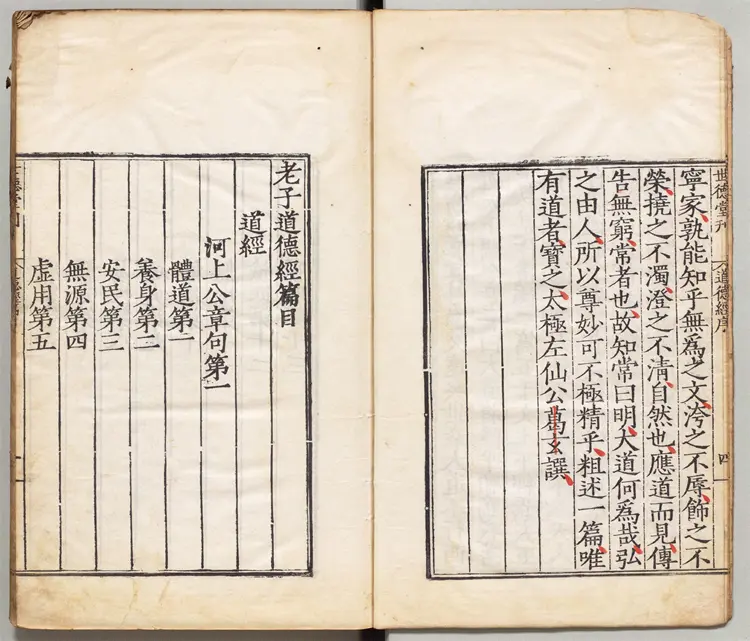 世德堂刊 道德經序 四
寧家孰能知乎無爲之文洿之不辱飾之不
榮撓之不濁澄之不清自然也應道而見傳
告無窮常者也故知常曰明大道何爲哉弘
之由人所以尊妙可不極精乎粗述一篇唯
有道者寶之太極左仙公葛玄譔
老子道德經篇目
道經
河上公章句第一
體道第一
養身第二
安民第三
無源第四
虛用第五